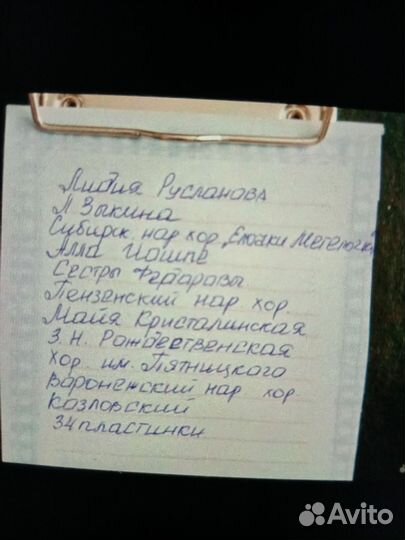 Лидия Русланова
Л. Зыкина
Сибирск. нар хор „Ёлочки Метелочки
Алла Иошпе
Сестры Федоровы
Пензенский нар хор.
Майя Кристалинская
З. Н. Рождественская
Хор им. Пятницкого
Воронежский нар хор
Козловский
34 пластинки
Avito